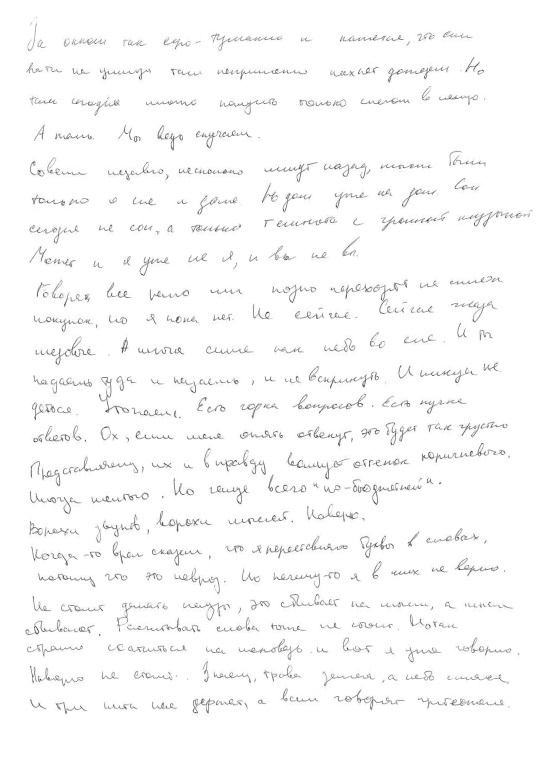 За окном так серо-туманно и кажется, что если
выйти на улицу там непременно пахнет дождем. Но
там сегодня может пахнуть только снегом
А жаль. Мы ведь скучаем.
Совсем недавно, несколько минут назад, были
только о сне и доме. Но дом уже не дом. Сон
сегодня не сон, а только темнота с громкой музыкой
Может и я уже не я, и вы не вы.
Говорят все рано или поздно переходят на
но я пока нет. Не сейчас. Сейчас глаза
А иногда синие как небо во сне. И ты
падаешь туда и, и не вскрикнуть. И никуда не
деться. Утопаешь. Есть горка вопросов. Есть кучка
ответов. Ох, если меня опять отвекут, это будет так грустно
Представляешь, их и вправду оттенок коричневого.
Иногда желтого. Но чаще всего "по-бюджетней".
Ворохи звуков, ворохи мыслей. Наверно.
Когда-то врач сказал, что я переставляю буквы в словах,
потому что это невроз. Но почему-то я в них не верю.
Не стоит делать паузы, это сбивает на мысли, а мысли
сбивают. Рассчитывать слова тоже не стоит. И так
страшно скатиться на исповедь и вот я уже говорю.
Наверно не стоит. Знаешь, трава зеленая, а небо синее
И три нити меня держат, а всем говорят